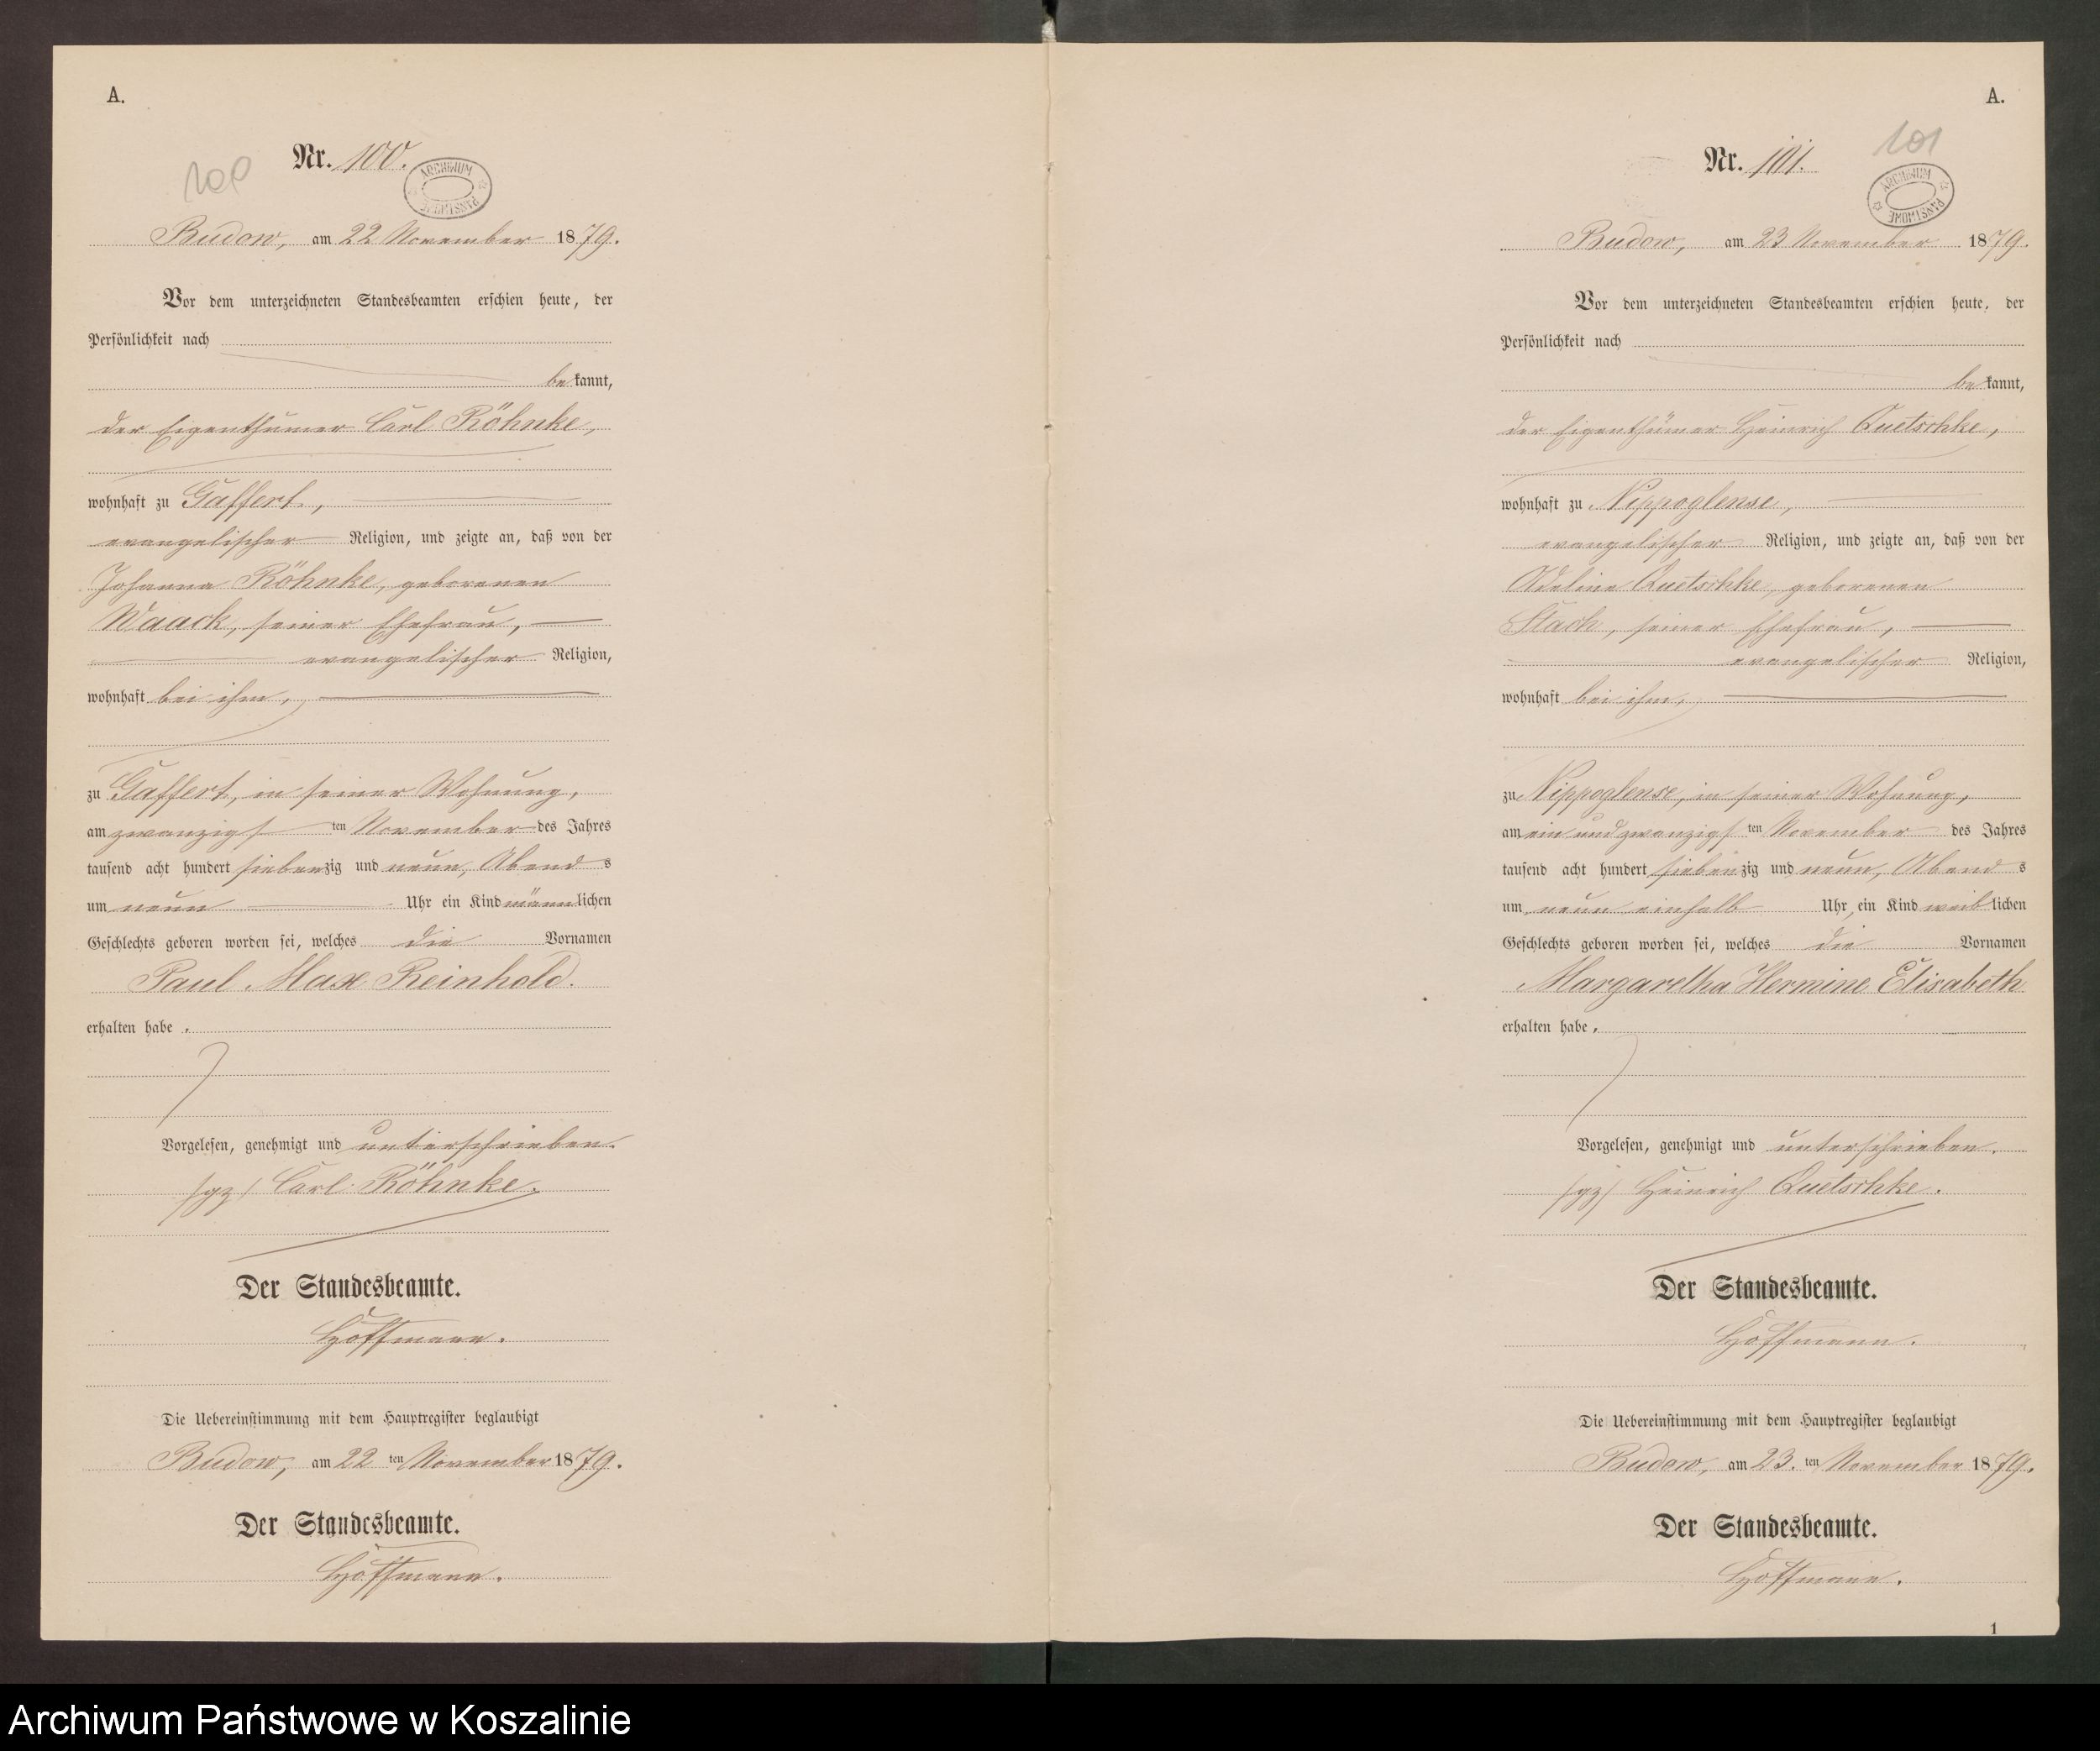 A.
Nr. 100.
100
ARCHIWUM PAŃSTWOWE
Budow, am 22 November 1879.
Vor dem unterzeichneten Standesbeamten erschien heute, der
Persönlichkeit nach
bekannt,
der Eigenthümer Carl Röhnke,
wohnhaft zu Gaffert,
evangelischer Religion, und zeigte an, daß von der
Johanna Röhnke, geborenen
Waack, seiner Ehefrau,
evangelischer Religion,
wohnhaft bei ihm,
zu Gaffert, in seiner Wohnung,
am zwanzigsten November des Jahres
tausend acht hundert siebenzig und neun, Abends
um neun Uhr ein Kind männlichen
Geschlechts geboren worden sei, welches die Vornamen
Paul Max Reinhold.
erhalten habe.
Vorgelesen, genehmigt und unterschrieben.
/gz/ Carl Röhnke.
Der Standesbeamte.
Hoffmann.
Die Uebereinstimmung mit dem Hauptregister beglaubigt
Budow, am 22 ten November 1879.
Der Standesbeamte.
Hoffmann.
A.
Nr. 101.
101
ARCHIWUM PAŃSTWOWE
Budow, am 23 November 1879.
Vor dem unterzeichneten Standesbeamten erschien heute, der
Persönlichkeit nach
bekannt,
der Eigenthümer Heinrich Quetschke,
wohnhaft zu Nippoglense,
evangelischer Religion, und zeigte an, daß von der
Adeline Quetschke, geborenen
Stach, seiner Ehefrau,
evangelischer Religion,
wohnhaft bei ihm,
zu Nippoglense, in seiner Wohnung,
am ein und zwanzigsten November des Jahres
tausend acht hundert siebenzig und neun, Abends
um neun einhalb Uhr ein Kind weiblichen
Geschlechts geboren worden sei, welches die Vornamen
Margaretha Hermine Elisabeth
erhalten habe.
Vorgelesen, genehmigt und unterschrieben.
/gz/ Heinrich Quetschke.
Der Standesbeamte.
Hoffmann.
Die Uebereinstimmung mit dem Hauptregister beglaubigt
Budow, am 23. ten November 1879.
Der Standesbeamte.
Hoffmann.
1
Archiwum Państwowe w Koszalinie